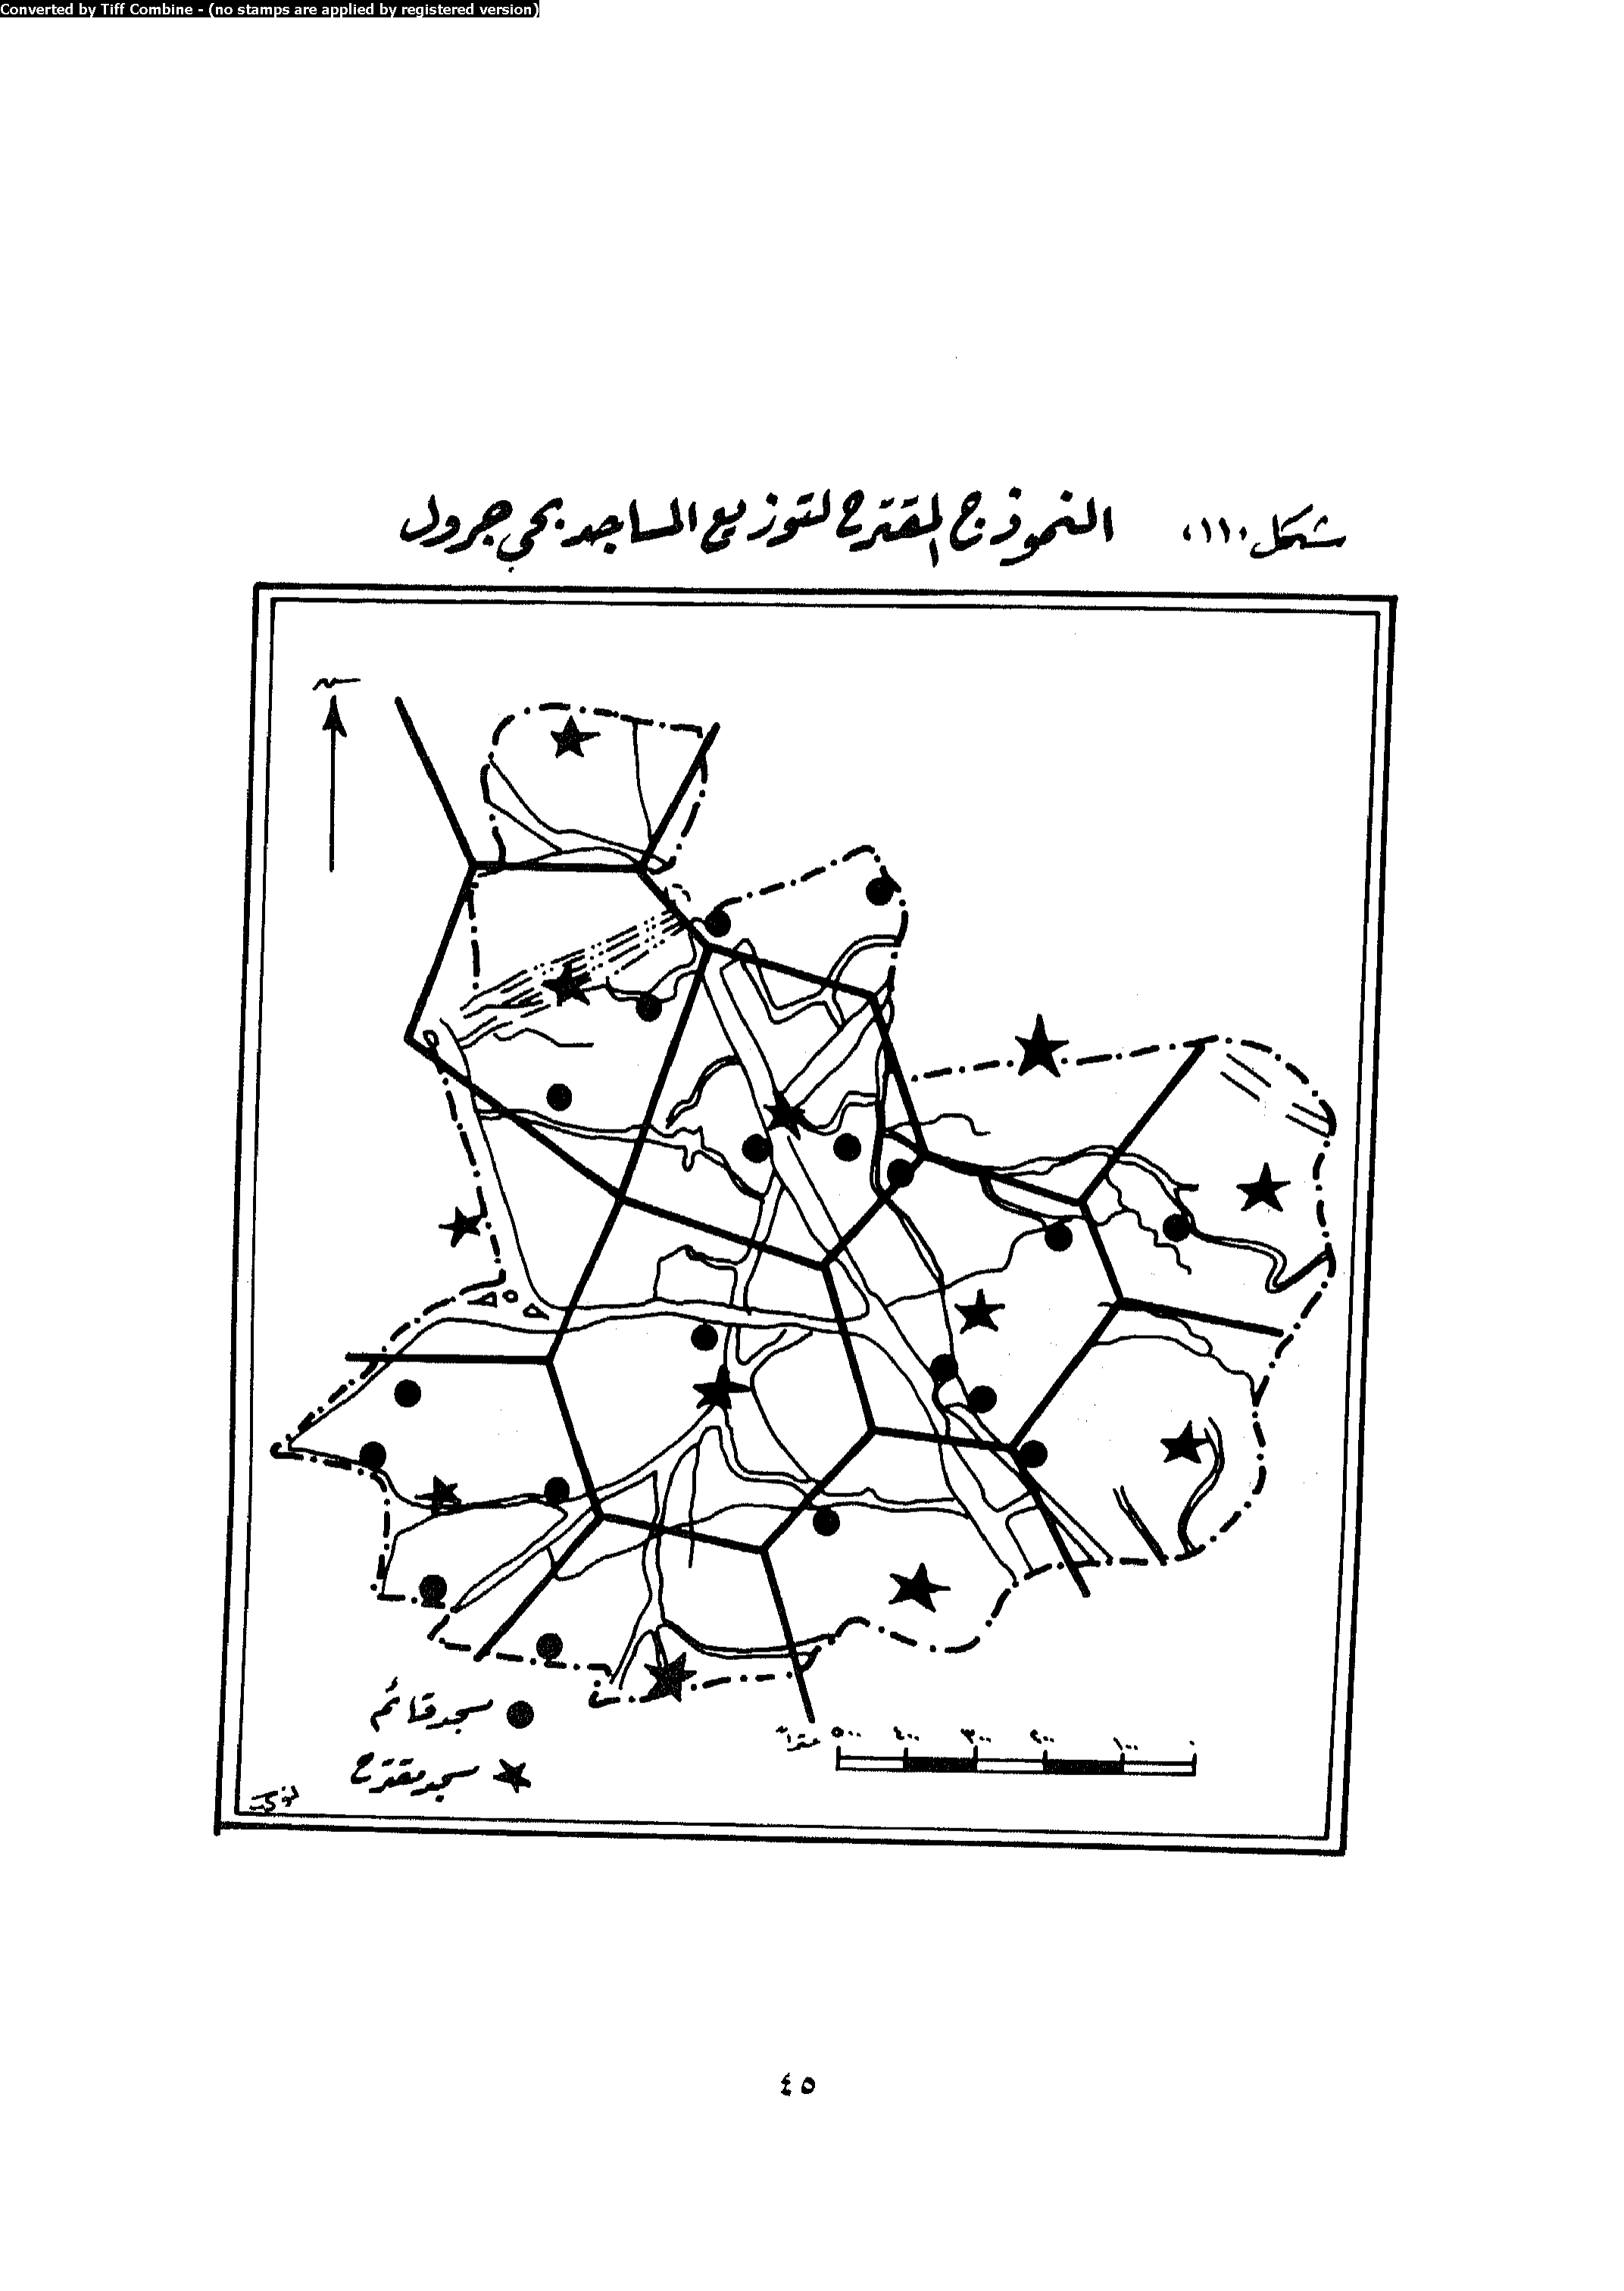 Converted by Tiff Combine - (no stamps are applied by registered version)
شكل (١١) النموذج المقترح لتوزيع المساجد بحي جرول
مسجد قائم
مسجد مقترح
٠ ١٠٠ ٢٠٠ ٣٠٠ ٤٠٠ ٥٠٠ متراً
٤٥